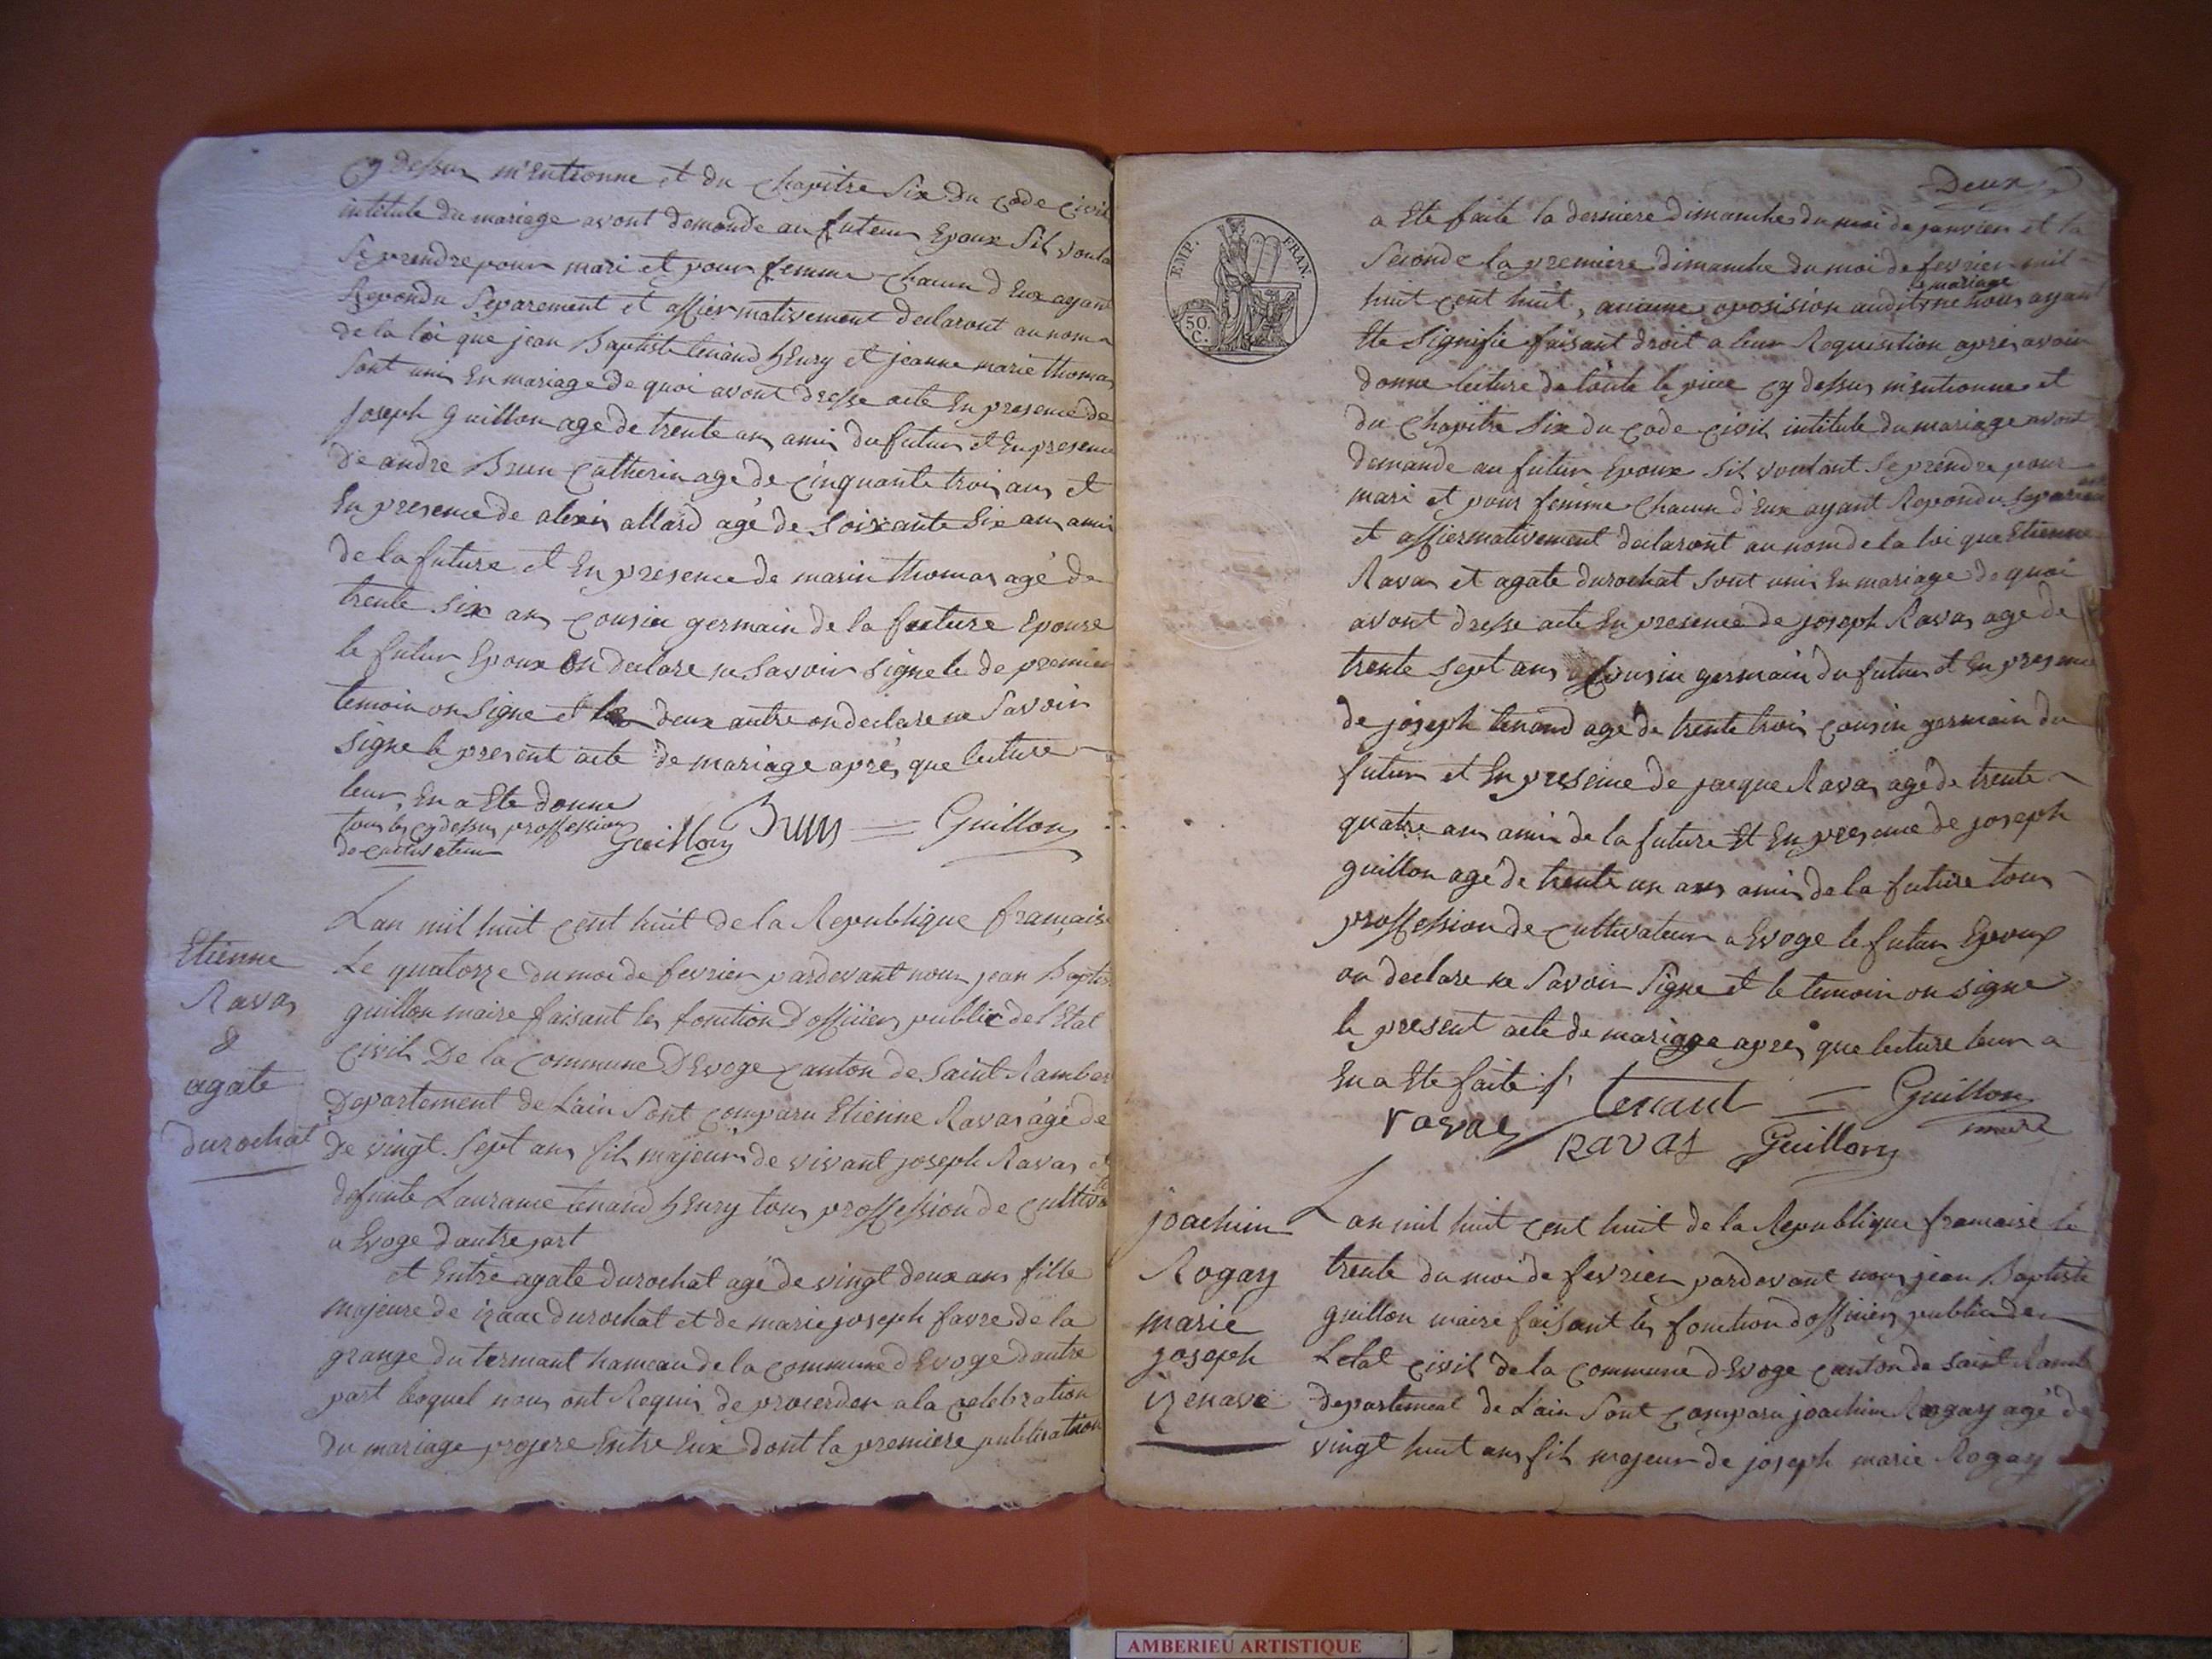 Cy dessus m'entionne et du chapitre Six du code civil
intitule du mariage avont demande au futeur Epoux Sil voula
Se prendre pour mari et pour femme chacun d Eux ayant
Repondu Separement et affiermativement declaront au nom
de la loi que jean Baptiste tenand hEnry et jeanne marie thomas
Sont unis En mariage de quoi avont dresse acte En presence de
joseph guillon age de trente ans amis du futur et En presence
de andre Brun Catherin age de cinquante trois ans et
En presence de alexis allard agé de Soixante Six ans amis
de la future et En presence de marin thomas agé de
trente Six ans cousin germain de la future Epouse
le futur Epoux On declare ne Savoir signe le de premier
temoin on Signe et les deux autre on declare ne Savoir
Signe le present acte de mariage aprés que lecture
leur En a Ete donne
tous les cy dessus proffession
de cultivateur
Guillon Brun = Guillon
Etienne
Ravas
&
agate
durochat
Lan mil huit cent huit de la Republique francaise
Le quatorze du moi de fevrier pardevant nous jean Baptis
guillon maire faisant les fonction D officier public de l'Etat
civil De la Commune D Evoge canton de Saint Ramber
Departement de Lain Sont comparu Etienne Ravas agé de
De vingt Sept ans fils majeur de vivant joseph Ravas et
defunte Laurance tenand hEnry tous proffession de cultiva
a Evoge dautre part
et Entre agate durochat agé de vingt deux ans fille
majeure de izaac durochat et de marie joseph favre de la
grange du termant hameau de la commune d Evoge dautre
part lesquel nous ont Requis de proceder a la celebration
du mariage projere Entre Eux dont la premiere publication
Deux
EMP. FRAN.
50. C.
a Ete faite la derniere dimanche du moi de janvier et la
Seconde la premiere dimanche du moi de fevrier mil
le mariage
huit cent huit, aucune oposision audit ne nous ayant
Ete Signifie faisant droit a leur Requisition apres avoir
donne lecture de toute le piece cy dessus m'entionne et
du chapitre Six du code civil intitule du mariage avont
demande au futur Epoux Sil voulant Se prendre pour
mari et pour femme chacun d'Eux ayant Repondu Separem
et affiermativement declaront au nom de la loi que Etienne
Ravas et agate durochat Sont unis En mariage de quoi
avont dresse acte En presence de joseph Ravas age de
trente sept ans cousin germain du futur et En presence
de joseph tenand age de trente trois cousin germain du
futur et En presence de jacque Ravas agé de trente
quatre ans amis de la future Et En presence de joseph
guillon agé de trente un ans amis de la future tous
proffession de cultivateur a Evoge le futur Epoux
on declare ne Savoir Signe et le temoin on signe
le present acte de mariage apres que lecture leur a
En a Ete faite
ravas tenant = Guillon
RAVAS Guillon maire
joachim
Rogay
marie
joseph
izenave
Lan mil huit cent huit de la Republique francaise le
trente du moi de fevrier pardevant nous jean Baptiste
guillon maire faisant les fonction d officier public de
Letat civil de la commune d Evoge canton de Saint Ramb
Departement de Lain Sont comparu joachim Rogay agé de
vingt huit ans fils majeur de joseph marie Rogay
AMBERIEU ARTISTIQUE